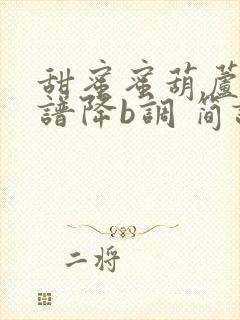 甜蜜蜜葫蘆
譜降b調 简
二将